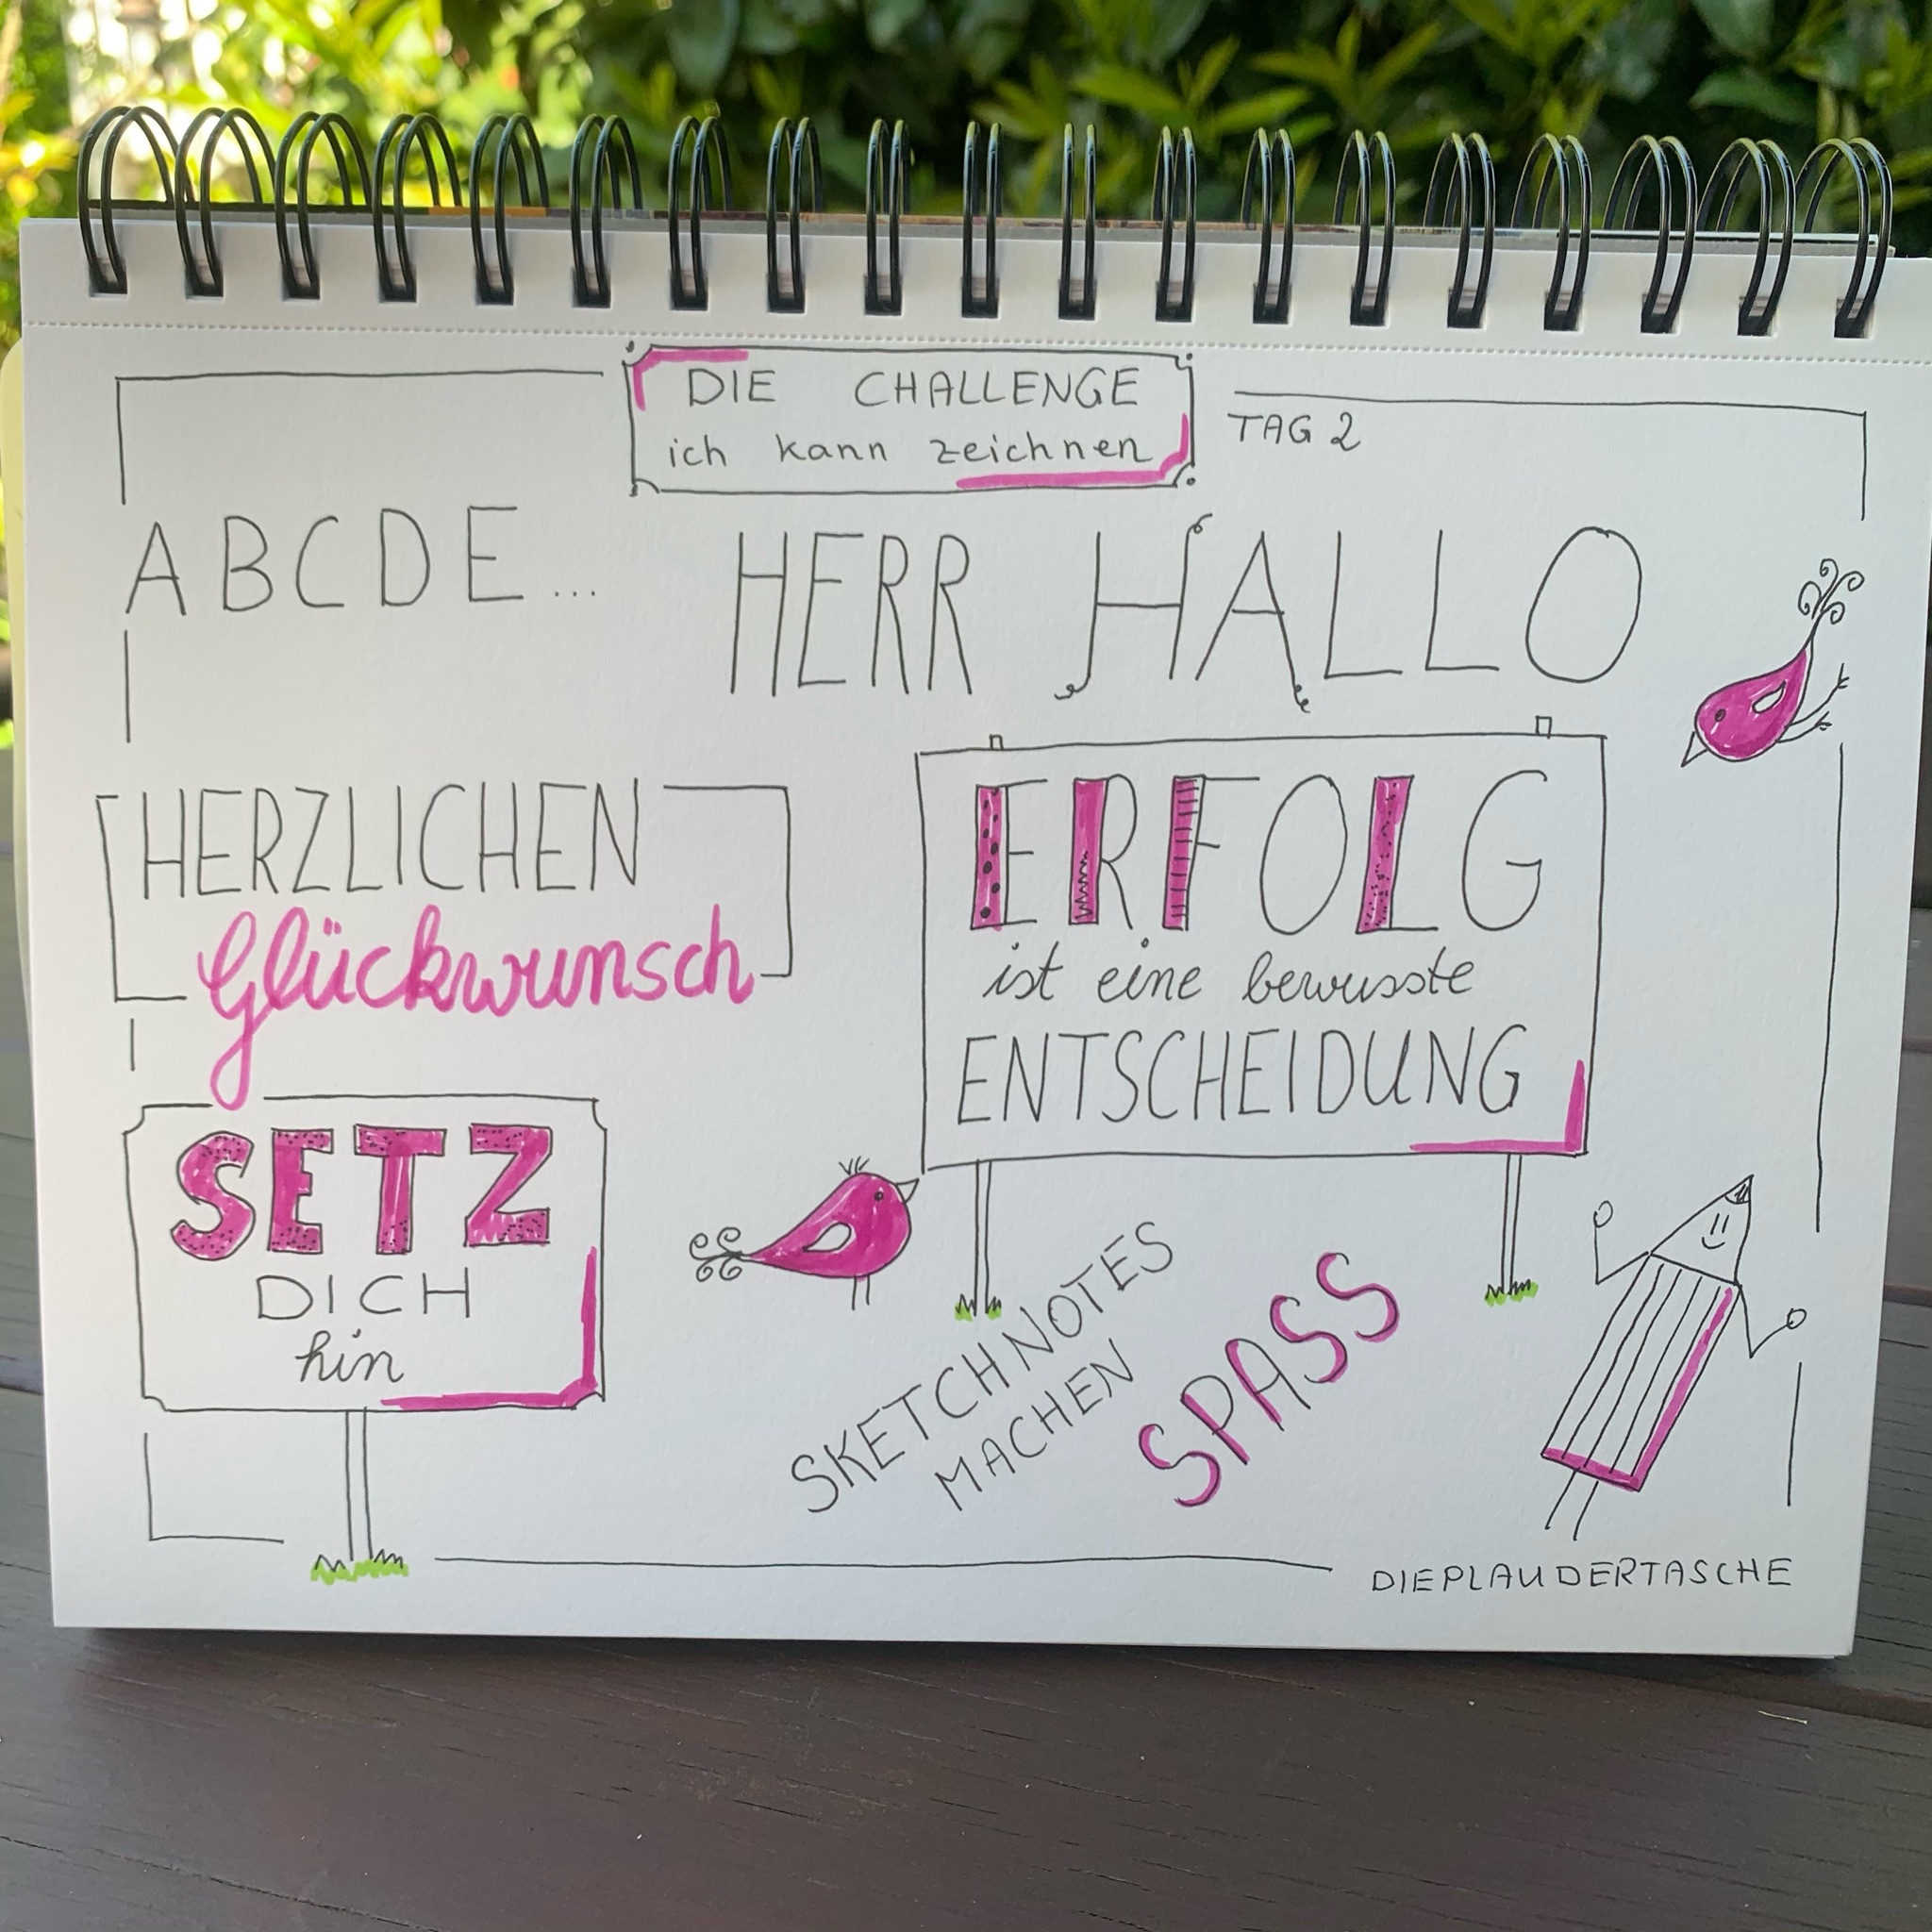 DIE CHALLENGE
ich kann zeichnen
TAG 2
ABCDE...
HERR HALLO
HERZLICHEN
Glückwunsch
ERFOLG
ist eine bewusste
ENTSCHEIDUNG
SETZ
DICH
hin
SKETCHNOTES
MACHEN
SPASS
DIEPLAUDERTASCHE